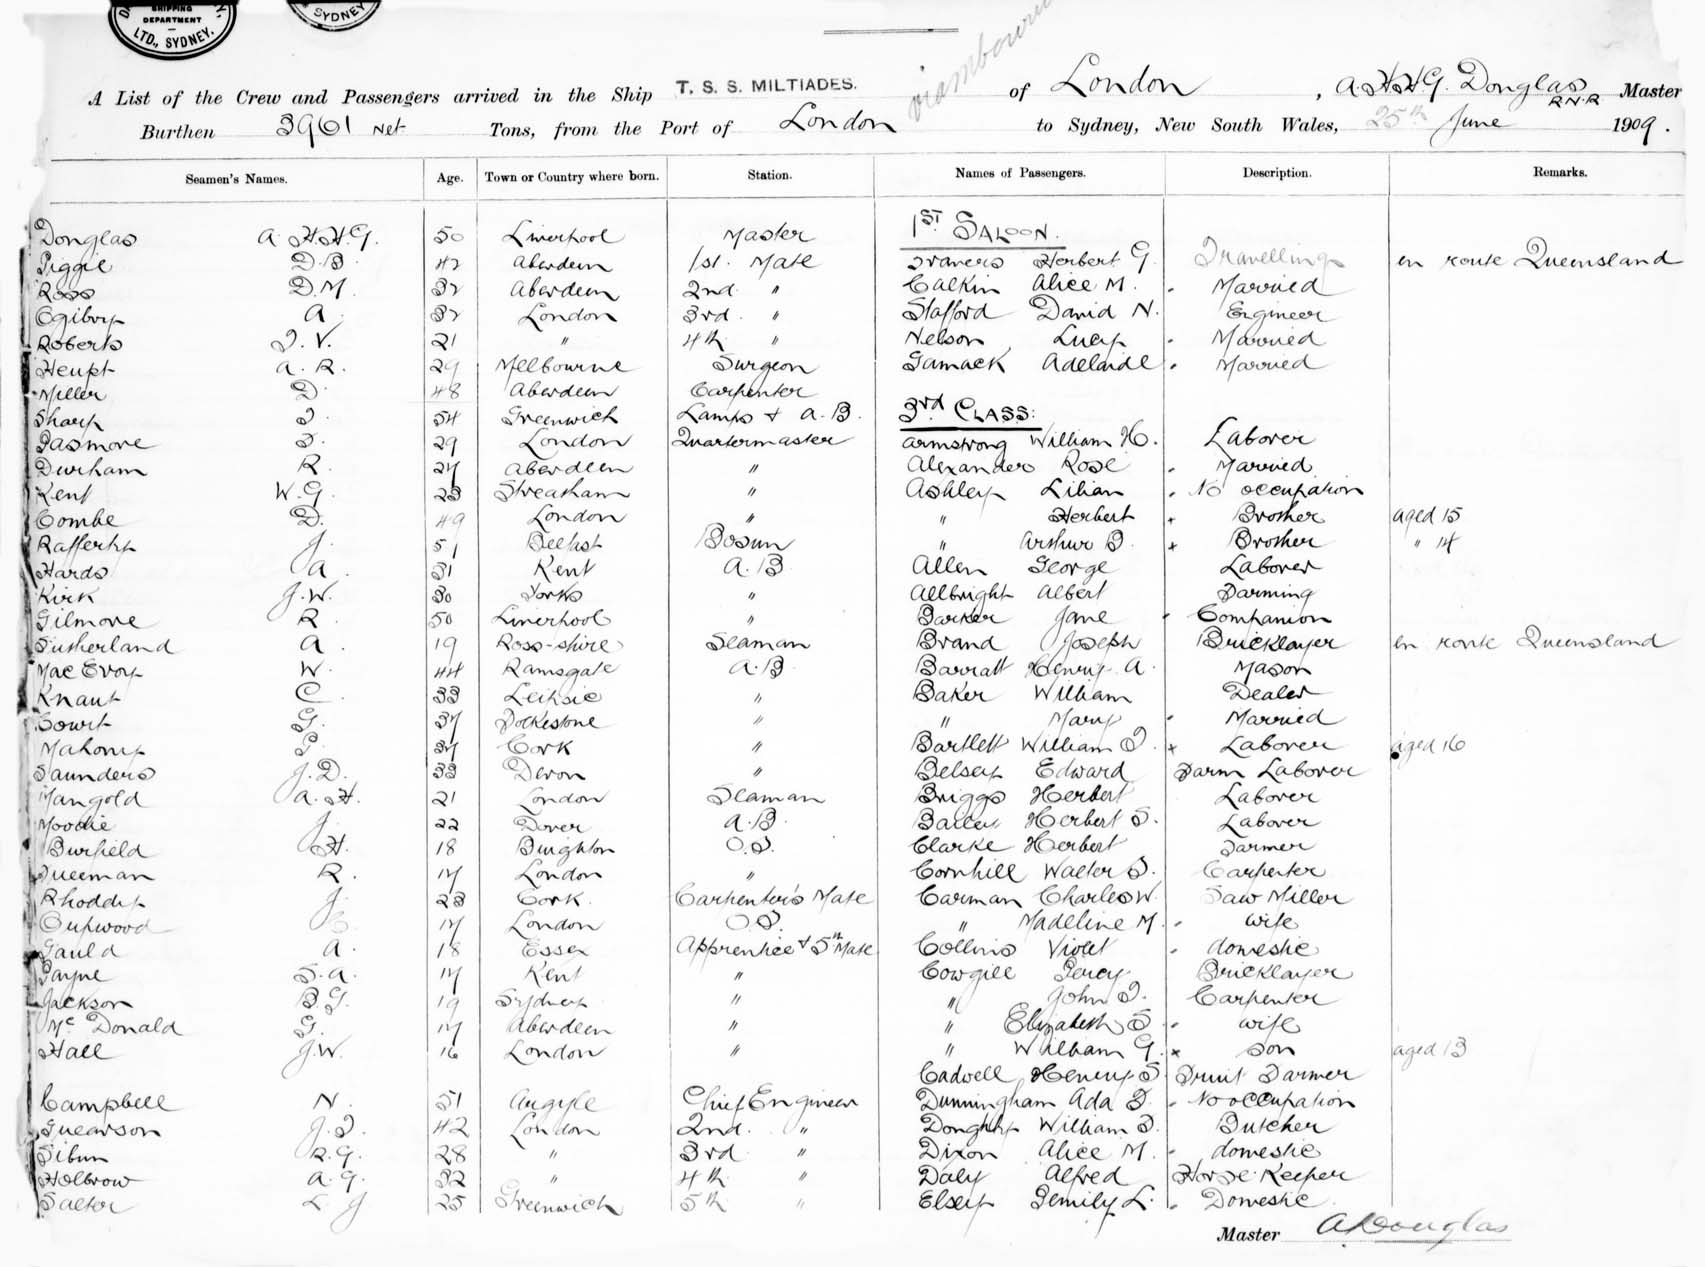 SHIPPING
DEPARTMENT
LTD., SYDNEY.
SYDNEY
A List of the Crew and Passengers arrived in the Ship T. S. S. MILTIADES. of London, A. H. H. G. Douglas R.N.R Master
Burthen 3961 Net Tons, from the Port of London to Sydney, New South Wales, 25th June 1909.
Seamen's Names. Age. Town or Country where born. Station. Names of Passengers. Description. Remarks.
Douglas A. H. H. G. 50 Liverpool Master 1ST SALOON.
Piggie D. B. 42 Aberdeen 1st. Mate Travers Herbert G. Travelling en route Queensland
Ross D. M. 32 Aberdeen 2nd. " Calkin Alice M. Married
Ogilvy A. 32 London 3rd. " Stafford David N. Engineer
Roberts T. V. 21 " 4th " Nelson Lucy Married
Heupt A. R. 29 Melbourne Surgeon Gamack Adelaide Married
Miller D. 48 Aberdeen Carpenter
Sharp T. 54 Greenwich Lamps & A. B. 3rd CLASS:
Pasmore 29 London Quartermaster Armstrong William H. Laborer
Durham R. 27 Aberdeen " Alexander Rose Married
Kent W. G. 23 Streatham " Ashley Lilian No occupation
Combe D. 49 London " " Herbert x Brother aged 15
Rafferty J. 51 Belfast Bosun " Arthur x Brother " 14
Hards A. 31 Kent A. B. Allen George Laborer
Kirk J. W. 30 Yorks " Allbright Albert Farming
Gilmore R. 50 Liverpool " Barker Jane Companion
Sutherland A. 19 Ross-shire Seaman Brand Joseph Bricklayer en route Queensland
MacEvoy W. 44 Ramsgate A. B. Barratt Henry A. Mason
Knaut C. 33 Leipsic " Baker William Dealer
Court G. 37 Folkestone " " Mary Married
Mahony 37 Cork " Bartlett William x Laborer aged 16
Saunders J. D. 33 Devon " Belsey Edward Farm Laborer
Mangold A. H. 21 London Seaman Briggs Herbert Laborer
Moodie J. 22 Dover A. B. Bailey Herbert S. Laborer
Burfield H. 18 Brighton O. S. Clarke Herbert Farmer
Freeman R. 17 London " Cornhill Walter Carpenter
Rhoddy J. 23 Cork. Carpenter's Mate Carman Charles W. Saw Miller
Cupwood 17 London O. S. " Madeline M. wife
Gauld A. 18 Essex Apprentice & 5th Mate Collins Violet domestic
Payne S. A. 17 Kent " Cowgill Percy Bricklayer
Jackson B. G. 19 Sydney " " John Carpenter
McDonald G. 17 Aberdeen " " Elizabeth S. wife
Hall J. W. 16 London " " William G. x son aged 13
Cadwell Henry S. Fruit Farmer
Campbell N. 51 Argyle Chief Engineer Dunningham Ada No occupation
Grearson 42 London 2nd. " Doughty William Butcher
Sibun R. G. 28 " 3rd " Dixon Alice M. domestic
Holbrow A. G. 32 " 4th " Daly Alfred Horse Keeper
Salter L. J 25 Greenwich 5th " Elsey Emily L. Domestic
Master A. Douglas